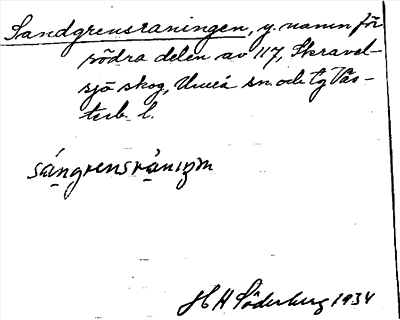 Sandgrensraningen, y. namn för
södra delen av 117, Skravel-
sjö skog, Umeå sn. och tg Väs-
terb. l.
sángrensrànızm
H H Söderberg 1934